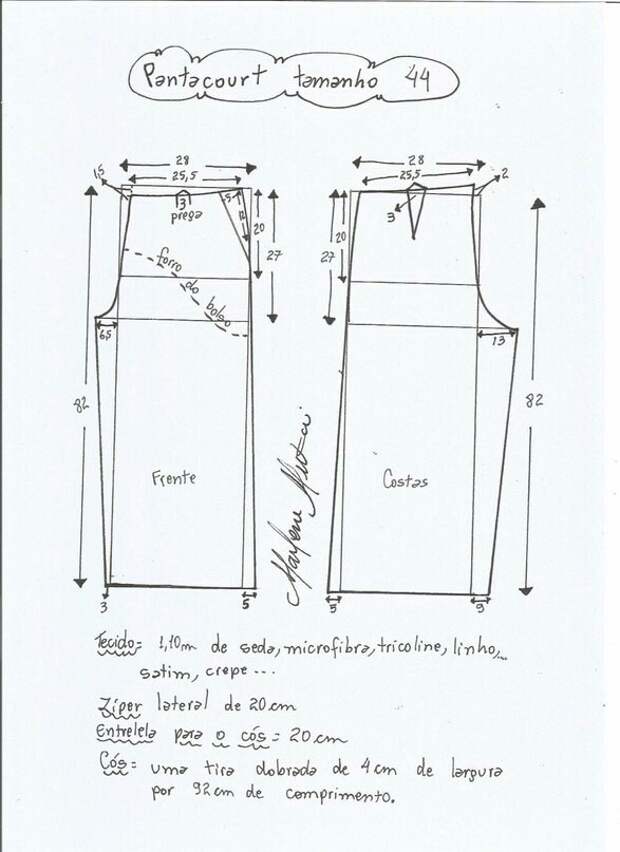 Pantacourt tamanho 44
28
25,5
1,5
3
prega
5
12
20
27
forro
do
bolso
6,5
82
Frente
3
5
28
25,5
2
3
20
27
13
82
Costas
5
9
Marlene Mukai
Tecido= 1,10m de seda, microfibra, tricoline, linho,
satim, crepe...
Zíper lateral de 20cm
Entretela para o cós = 20cm
Cós= uma tira dobrada de 4cm de largura
por 92cm de comprimento.